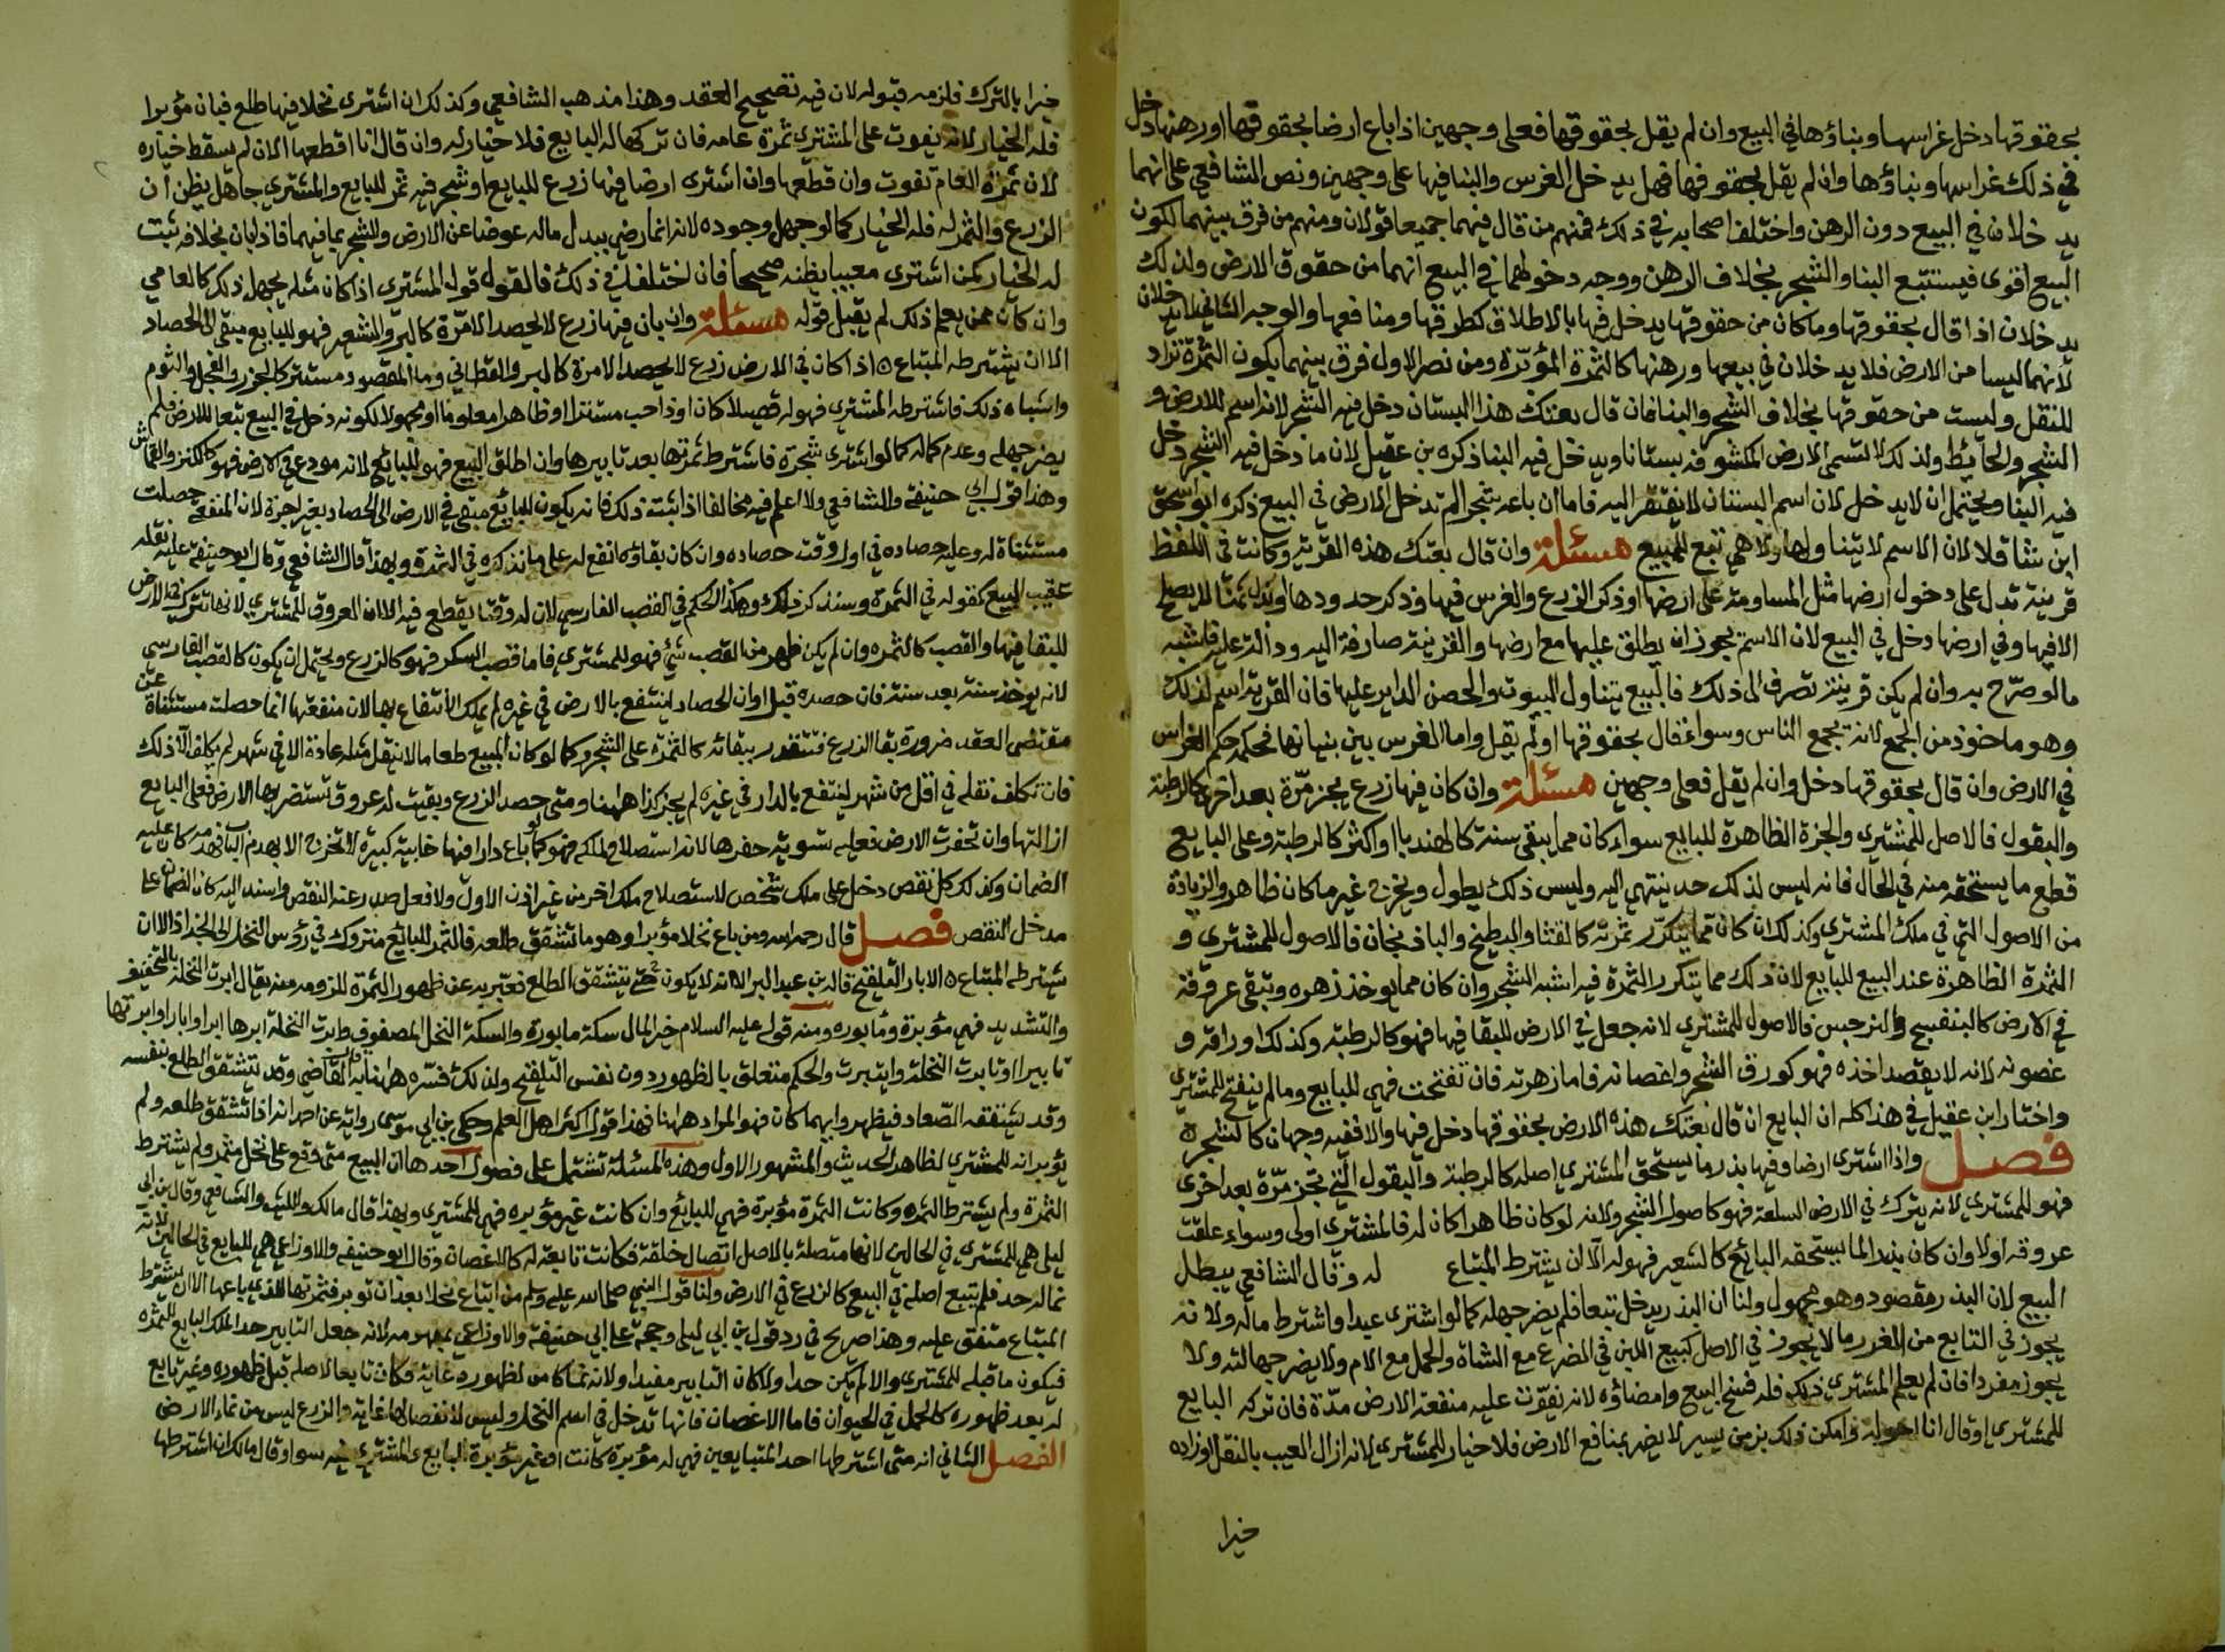 بحقوقها دخل غراسها وبناؤها في البيع وان لم يقل بحقوقها فعلى وجهين اذا باع ارضا بحقوقها او رهنها دخل
في ذلك غراسها وبناؤها وان لم يقل بحقوقها فهل يدخل الغرس والبنا فيها على وجهين ونص الشافعي على انهما
يدخلان في البيع دون الرهن واختلف اصحابه في ذلك فمنهم من قال فيهما جميعا قولان ومنهم من فرق بينهما لكون
البيع اقوى فيستتبع البنا والشجر بخلاف الرهن ووجه دخولهما في البيع انهما من حقوق الارض ولذلك
يدخلان اذا قال بحقوقها وما كان من حقوقها يدخل فيها بالاطلاق كطرقها ومنافعها والوجه الثاني لا يدخلان
لانهما ليسا من الارض فلا يدخلان في بيعها ورهنها كالثمرة المؤبرة ومن نصر الاول فرق بينهما بكون الثمرة تراد
للنقل وليست من حقوقها بخلاف الشجر والبنا فان قال بعتك هذا البستان دخل فيه الشجر لانه اسم للارض و
الشجر والحائط ولذلك لا تسمى الارض المكشوفة بستانا ويدخل فيه البنا ذكره بن عقيل لان ما دخل فيه الشجر دخل
فيه البنا ويحتمل ان لا يدخل لان اسم البستان لا يفتقر اليه فاما ان باعه شجرا لم تدخل الارض في البيع ذكره ابو اسحق
ابن شاقلا لان الاسم لا يتناولها ولا هي تبع للمبيع مسئلة وان قال بعتك هذه القرية وكانت في اللفظ
قرينة تدل على دخول ارضها مثل المساومة على ارضها او ذكر الزرع والغرس فيها وذكر حدودها او بذل ثمنا لا يصلح
الا فيها وفي ارضها دخل في البيع لان الاسم يجوز ان يطلق عليها مع ارضها والقرينة صارفة اليه ودالة عليه فاشبه
ما لو صرح به وان لم يكن قرينة تصرف الى ذلك فالبيع يتناول البيوت والحصن الداير عليها فان القرية اسم لذلك
وهو ماخوذ من الجمع لانه يجمع الناس وسوا قال بحقوقها او لم يقل واما الغرس بين بنيانها فحكمه حكم الغراس
في الارض وان قال بحقوقها دخل وان لم يقل فعلى وجهين مسئلة وان كان فيها زرع يجز مرة بعد اخرى كالرطبة
والبقول فالاصل للمشتري والجزة الظاهرة للبايع سواء كان مما يبقى سنة كالهندبا او اكثر كالرطبة وعلى البايع
قطع ما يستحقه منه في الحال فانه ليس لذلك حد ينتهي اليه وليس ذلك يطول ويخرج غير ما كان ظاهر والزيادة
من الاصول التي في ملك المشتري وكذلك ان كان مما يتكرر ثمرته كالقثا والبطيخ والباذنجان فالاصول للمشتري و
الثمرة الظاهرة عند البيع للبايع لان ذلك مما يتكرر الثمرة فيه اشبه الشجر وان كان مما يوخذ زهره وتبقى عروقه
في الارض كالبنفسج والنرجس فالاصول للمشتري لانه جعل في الارض للبقا فيها فهو كالرطبة وكذلك اوراقه و
غصونه لانه لا يقصد اخذه فهو كورق الشجر واغصانه فاما زهرته فان تفتحت فهي للبايع وما لم ينفتح للمشتري
واختار ابن عقيل في هذا كله ان البايع ان قال بعتك هذه الارض بحقوقها دخل فيها والا ففيه وجهان كالشجرة
فصل واذا اشترى ارضا وفيها بذر ما يستحق المشتري اصله كالرطبة والبقول التي تجز مرة بعد اخرى
فهو للمشتري لانه يترك في الارض السلعة فهو كاصول الشجر ولانه لو كان ظاهرا كان له فالمشتري اولى وسواء علقت
عروقه او لا وان كان بذرا لما يستحقه البائع كالشعير فهو له الا ان يشترط المبتاع له وقال الشافعي يبطل
البيع لان البذر مقصود وهو مجهول ولنا ان البذر يدخل تبعا فلم يضر جهله كما لو اشترى عبدا واشترط ماله ولانه
يجوز في التابع من الغرر ما لا يجوز في الاصل كبيع اللبن في الضرع مع الشاة والحمل مع الام ولا يضر جهالته ولا
يجوز مفردا فان لم يعلم المشتري ذلك فله فسخ البيع وامضاؤه لانه يفوت عليه منفعة الارض مدة فان تركه البايع
للمشتري او قال انا احوله وامكن ذلك بزمن يسير لا يضر بمنافع الارض فلا خيار للمشتري لانه ازال العيب بالنقل او زاده
خيرا
خيرا بالترك فلزمه قبوله لان فيه تصحيح العقد وهذا مذهب الشافعي وكذلك ان اشترى نخلا فيها طلع فبان مؤبرا
فله الخيار لانه يفوت على المشتري ثمرة عامه فان تركها له البايع فلا خيار له وان قال انا اقطعها الان لم يسقط خياره
لان ثمرة العام تفوت وان قطعها وان اشترى ارضا فيها زرع للبايع او شجر فيه ثمر للبايع والمشتري جاهل يظن ان
الزرع والثمر له فله الخيار كما لو جهل وجوده لانه انما رضي ببدل ماله عوضا عن الارض والشجر بما فيهما فاذا بان بخلافه ثبت
له الخيار كمن اشترى معيبا يظنه صحيحا فان اختلفا في ذلك فالقول قول المشتري اذا كان مثله يجهل ذلك كالعامي
وان كان ممن يعلم ذلك لم يقبل قوله مسئلة وان بان فيها زرع لا يحصد الا مرة كالبر والشعير فهو للبايع مبقى الى الحصاد
الا ان يشترطه المبتاع ه اذا كان في الارض زرع لا يحصد الا مرة كالبر والقطاني وما المقصود مستتر كالجزر والفجل والثوم
واشباه ذلك فاشترطه المشتري فهو له قصيلا كان او ذا حب مستترا او ظاهرا معلوما او مجهولا لكونه دخل في البيع تبعا للارض فلم
يضر جهله وعدم كماله كما لو اشترى شجرة فاشترط ثمرتها بعد تابيرها وان اطلق البيع فهو للبائع لانه مودع في الارض فهو كالكنز والقماش
وهذا قول ابي حنيفة والشافعي ولا اعلم فيه مخالفا اذا ثبت ذلك فانه يكون للبائع مبقى في الارض الى الحصاد بغير اجرة لان المنفعة حصلت
مستثناة له وعليه حصاده في اول وقت حصاده وان كان بقاؤه انفع له على ما نذكره في الثمرة وبهذا قال الشافعي وقال ابو حنيفة عليه نقله
عقيب البيع كقوله في الثمرة وسنذكر ذلك وهكذا الحكم في القصب الفارسي لان له وقتا يقطع فيه الا ان العروق للمشتري لانها تترك في الارض
للبقا فيها والقصب كالثمره وان لم يكن ظهر من القصب شئ فهو للمشتري فاما قصب السكر فهو كالزرع ويحتمل ان يكون كالقصب الفارسي
لانه يوخذ سنة بعد سنة فان حصده قبل اوان الحصاد لينتفع بالارض في غيره لم يملك الانتفاع بها لان منفعتها انما حصلت مستثناة عن
مقتضى العقد ضرورة بقا الزرع فتتقدر ببقائه كالثمرة على الشجر وكما لو كان المبيع طعاما لا ينقل مثله عادة الا في شهر لم يكلف الا ذلك
فان تكلف نقله في اقل من شهر لينتفع بالدار في غيره لم يجز كذا هاهنا ومتى حصد الزرع وبقيت له عروق تستضر بها الارض فعلى البايع
ازالتها وان تحفرت الارض فعليه تسوية حفرها لانه استصلاح لملكه فهو كما لو باع دارا فيها خابية كبيرة لا تخرج الا بهدم الباب فهدمه كان عليه
الضمان وكذلك كل نقص دخل على ملك شخص لاستصلاح ملك اخر من غير اذن الاول ولا فعل صدر عنه النقص واسند اليه كان الضمان على
مدخل النقص فصل قال رحمه الله ومن باع نخلا مؤبرا وهو ما تشقق طلعه فالثمر للبائع متروك في رؤس النخل الى الجذاذ الا ان
يشترطه المبتاع ه الابار التلقيح قاله بن عبد البر الا انه لا يكون حتى يتشقق الطلع فعبر به عن ظهور الثمرة للزومه منه يقال ابرت النخلة بالتخفيف
والتشديد فهي مؤبرة ومأبوره ومنه قوله عليه السلام خير المال سكة مابورة والسكة النخل المصفوف وابرت النخلة ابرها ابرا وابارا وابرتها
تابيرا وتابرت النخلة وايتبرت والحكم متعلق بالظهور دون نفس التلقيح ولذلك فسره هاهنا به قال القاضي وقد يتشقق الطلع بنفسه
وقد يشققه الصعاد فيظهر وايهما كان فهو المراد هاهنا فهذا قول اكثر اهل العلم وحكى بن ابي موسى رواية عن احمد انه اذا تشقق طلعه ولم
يؤبر انه للمشتري لظاهر الحديث والمشهور الاول وهذه المسئلة تشتمل على فصول احدها ان البيع متى وقع على نخل مثمر ولم يشترط
الثمرة ولم يشترط الثمره وكانت الثمرة مؤبرة فهي للبائع وان كانت غير مؤبره فهي للمشتري وبهذا قال مالك والليث والشافعي وقال بن ابي
ليلى هي للمشتري في الحالين لانها متصلة بالاصل اتصال خلقة فكانت تابعة له كالاغصان وقال ابو حنيفه والاوزاعي هي للبايع في الحالين لانه
نما له حد فلم يتبع اصله في البيع كالزرع في الارض ولنا قول النبي صلى الله عليه وسلم من ابتاع نخلا بعد ان توبر فثمرتها للذي باعها الا ان يشترط
المبتاع متفق عليه وهذا صريح في رد قول بن ابي ليلى وحجة على ابي حنيفة والاوزاعي بمفهومه لانه جعل التابير حدا لملك البايع للثمره
فيكون ما قبله للمشتري والا لم يكن حدا ولا كان التابير مفيدا ولانه نما كامن لظهوره غاية فكان تابعا لاصله قبل ظهوره وغير تابع
له بعد ظهوره كالحمل في الحيوان فاما الاغصان فانها تدخل في اسم النخل وليس لانفصالها غاية والزرع ليس من نماء الارض
الفصل الثاني انه متى اشترطها احد المتبايعين فهي له مؤبرة كانت او غير مؤبرة البايع والمشتري فيه سوا وقال مالك ان اشترطها